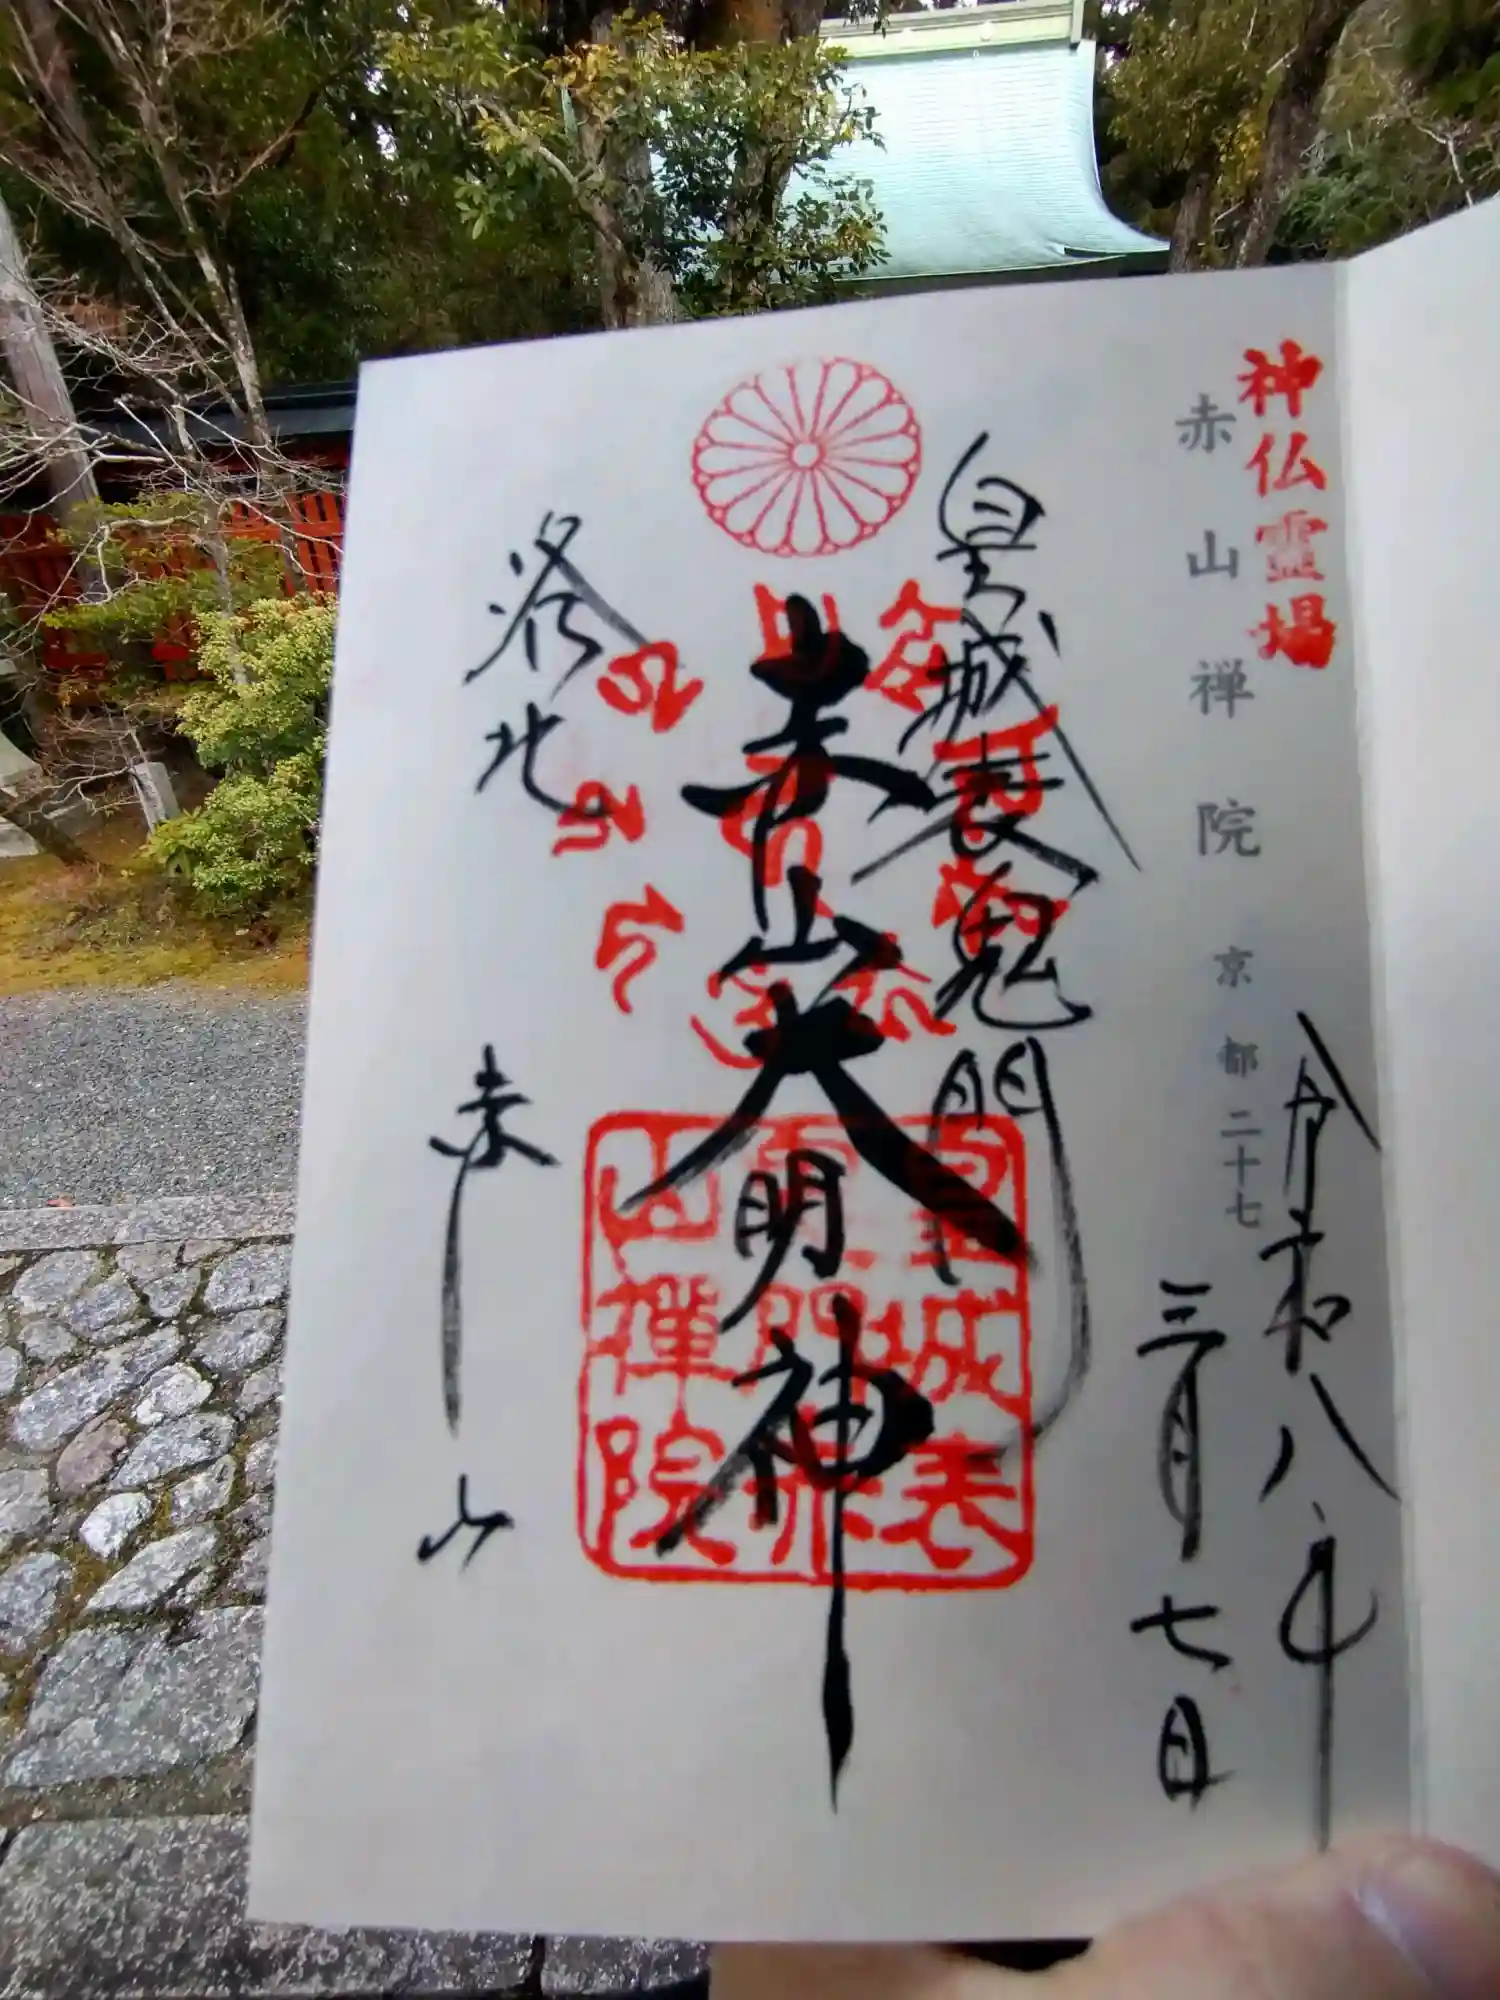 神仏霊場
赤山禅院 京都二十七
令和八年
三月七日
皇城表鬼門
赤山大明神
皇城表
霊門赤
山禅院
洛北
赤山